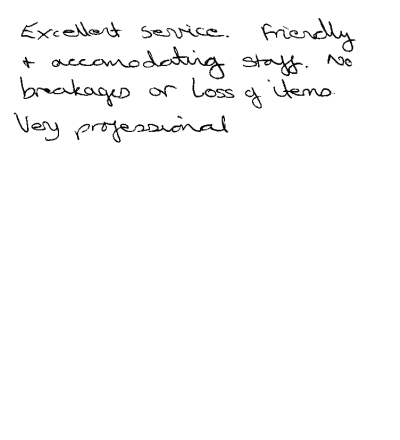 Excellent service. Friendly
+ accomodating staff. No
breakages or loss of items
Very professional